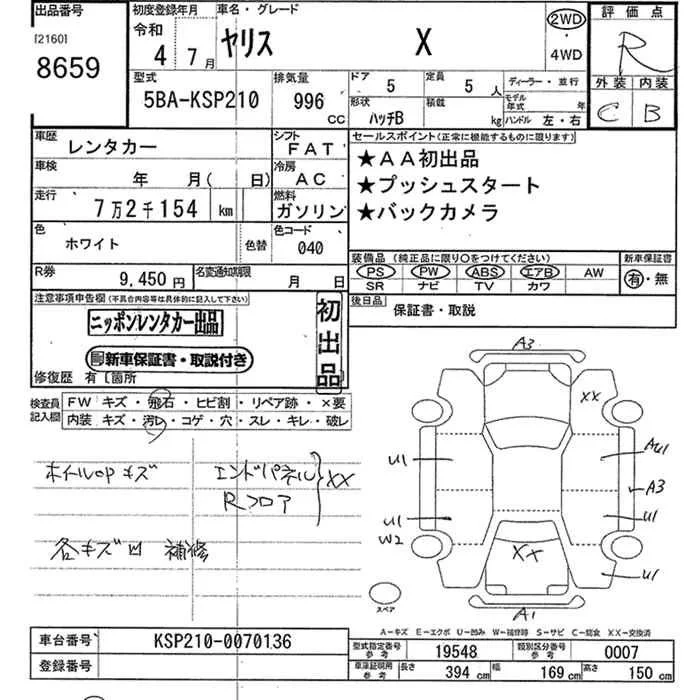 出品番号
[2160]
8659
初度登録年月
令和
4 7月
車名・グレード
ヤリス X
2WD
・
4WD
評価点
R
外装 内装
C B
型式
5BA-KSP210
排気量
996 CC
ドア 5
定員 5 人
形状 ハッチB
積載 kg
ディーラー・並行
モデル年式 年
ハンドル 左・右
車歴
レンタカー
シフト
FAT
車検
年 月( 日)
冷房
AC
走行
7万2千154 km
燃料
ガソリン
色
ホワイト
色替
色コード
040
R券
9,450円
名変通知期限
月 日
セールスポイント(正常に機能するものに限ります)
★AA初出品
★プッシュスタート
★バックカメラ
装備品 (純正品に限り○をつけてください)
PS PW ABS エアB AW
SR ナビ TV カワ
新車保証書
有・無
後日品
保証書・取説
注意事項申告欄(不具合内容等は具体的に記入して下さい)
ニッポンレンタカー出品
新車保証書・取説付き
初出品
修復歴 有 [箇所
検査員記入欄
FW キズ・飛石・ヒビ割・リペア跡・×要
内装 キズ・汚レ・コゲ・穴・スレ・キレ・破レ
ホイールcap キズ
エンドパネル
Rフロア
XX
各キズ凹 補修
A3
XX
U1
AU1
A3
U1
W2
U1
XX
U1
A1
スペア
A−キズ E−エクボ U−凹み W−補修跡 S−サビ C−腐食 XX−交換済
車台番号
KSP210-0070136
登録番号
型式指定番号 参考
19548
類別区分番号 参考
0007
車庫証明用 参考
長さ 394 cm
幅 169 cm
高さ 150 cm